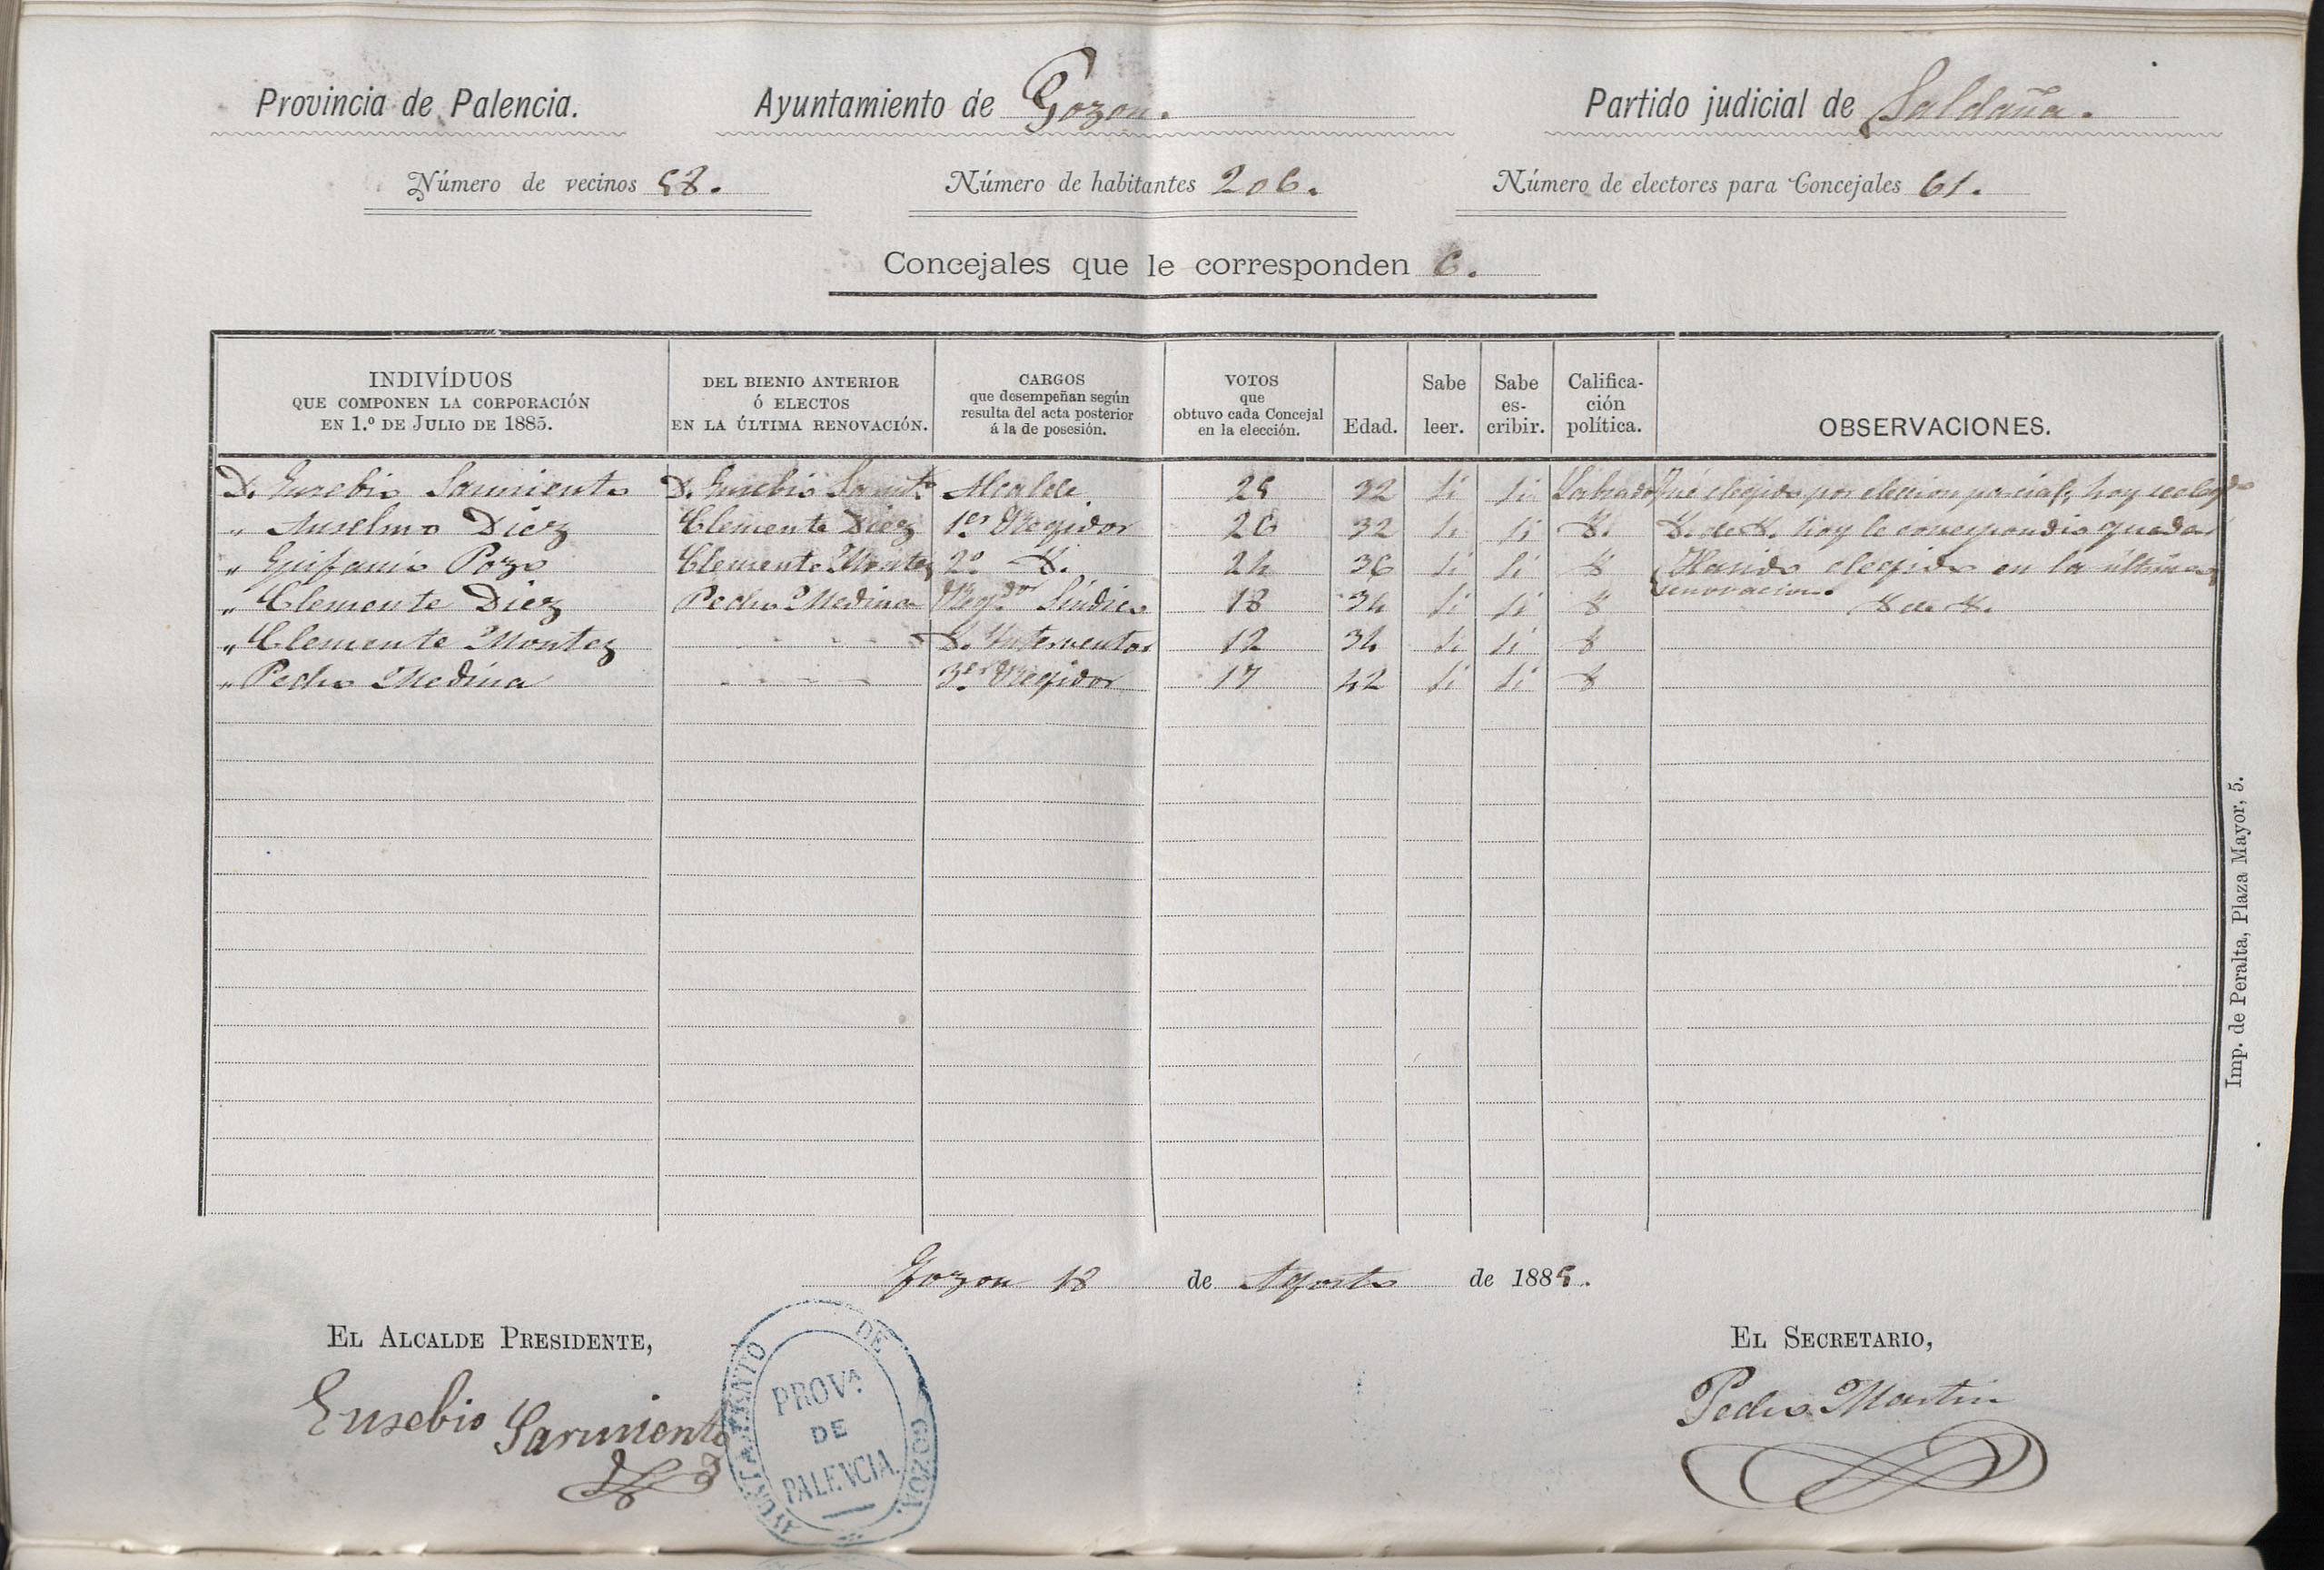 Provincia de Palencia. Ayuntamiento de Gozon. Partido judicial de Saldaña.
Número de vecinos 58. Número de habitantes 206. Número de electores para Concejales 61.
Concejales que le corresponden 6.
INDIVÍDUOS QUE COMPONEN LA CORPORACIÓN EN 1.º DE JULIO DE 1885.
DEL BIENIO ANTERIOR Ó ELECTOS EN LA ÚLTIMA RENOVACIÓN.
CARGOS que desempeñan según resulta del acta posterior á la de posesión.
VOTOS que obtuvo cada Concejal en la elección.
Edad.
Sabe leer.
Sabe es-cribir.
Califica-ción política.
OBSERVACIONES.
D. Eusebio Sarmiento D. Eusebio Sarmto Alcalde 25 32 si si Labrador Fué elegido por eleccion parcial, hoy
" Anselmo Diez Clemente Diez 1er Regidor 26 32 si si Y. Y. de Y. hoy le correspondio quedar
" Epifanio Pozo Clemente Montez 2º Y. 24 36 si si Y Ha sido elegido en la última
renovacion.
" Clemente Diez Pedro Medina Regdor Síndico 18 34 si si Y Y de Y.
" Clemente Montez - - - - Y. Interventor 12 34 si si Y
" Pedro Medina - - - - 3er Regidor 17 42 si si Y
Imp. de Peralta, Plaza Mayor, 5.
Gozon 18 de Agosto de 1885.
EL ALCALDE PRESIDENTE, EL SECRETARIO,
Eusebio Sarmiento Pedro Martin
AYUNTAMIENTO DE GOZON.
PROVA.
DE
PALENCIA.